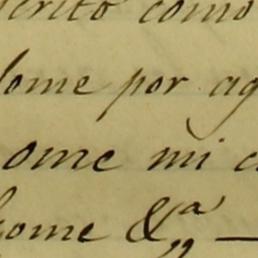 crito como
dome por ag
ome mi c
ome &ª —